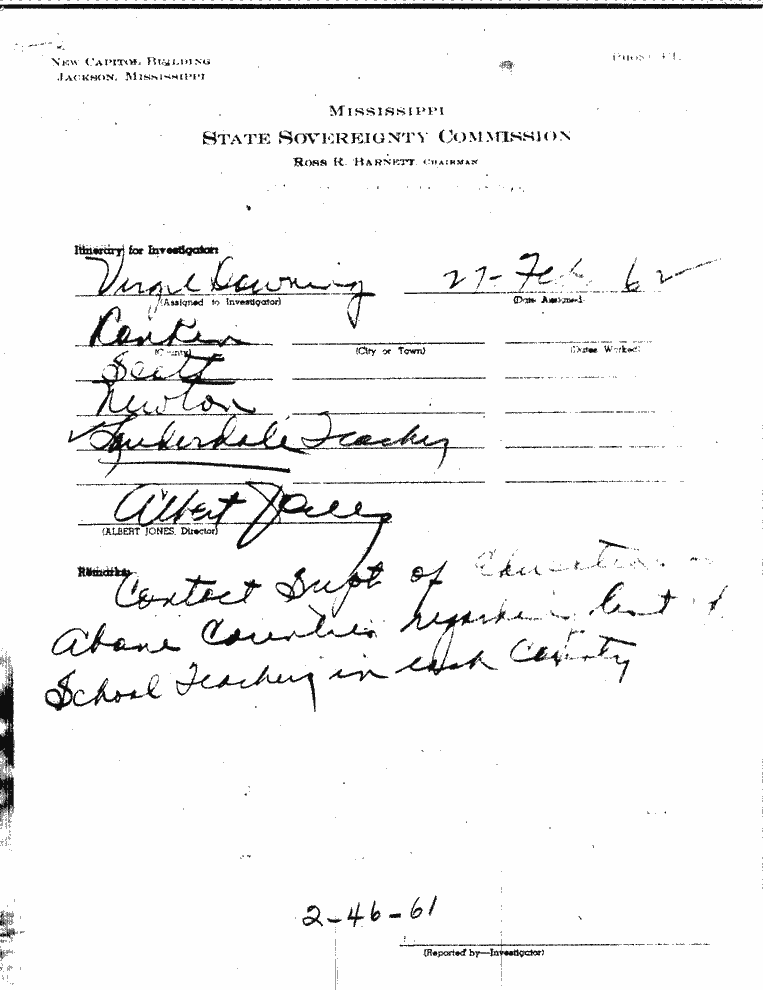 New Capitol Building
Jackson, Mississippi
Mississippi
State Sovereignty Commission
Ross R. Barnett, Chairman
Itinerary for Investigator:
Virgil Downing 27-Feb 62
(Assigned to Investigator) (Date Assigned)
Rankin
(County) (City or Town) (Dates Worked)
Scott
Newton
Lauderdale Teachers
Albert Jones
(ALBERT JONES, Director)
Remarks:
Contact Supt of Education in
above Counties regarding list of
School Teachers in each County
2-46-61
(Reported by—Investigator)